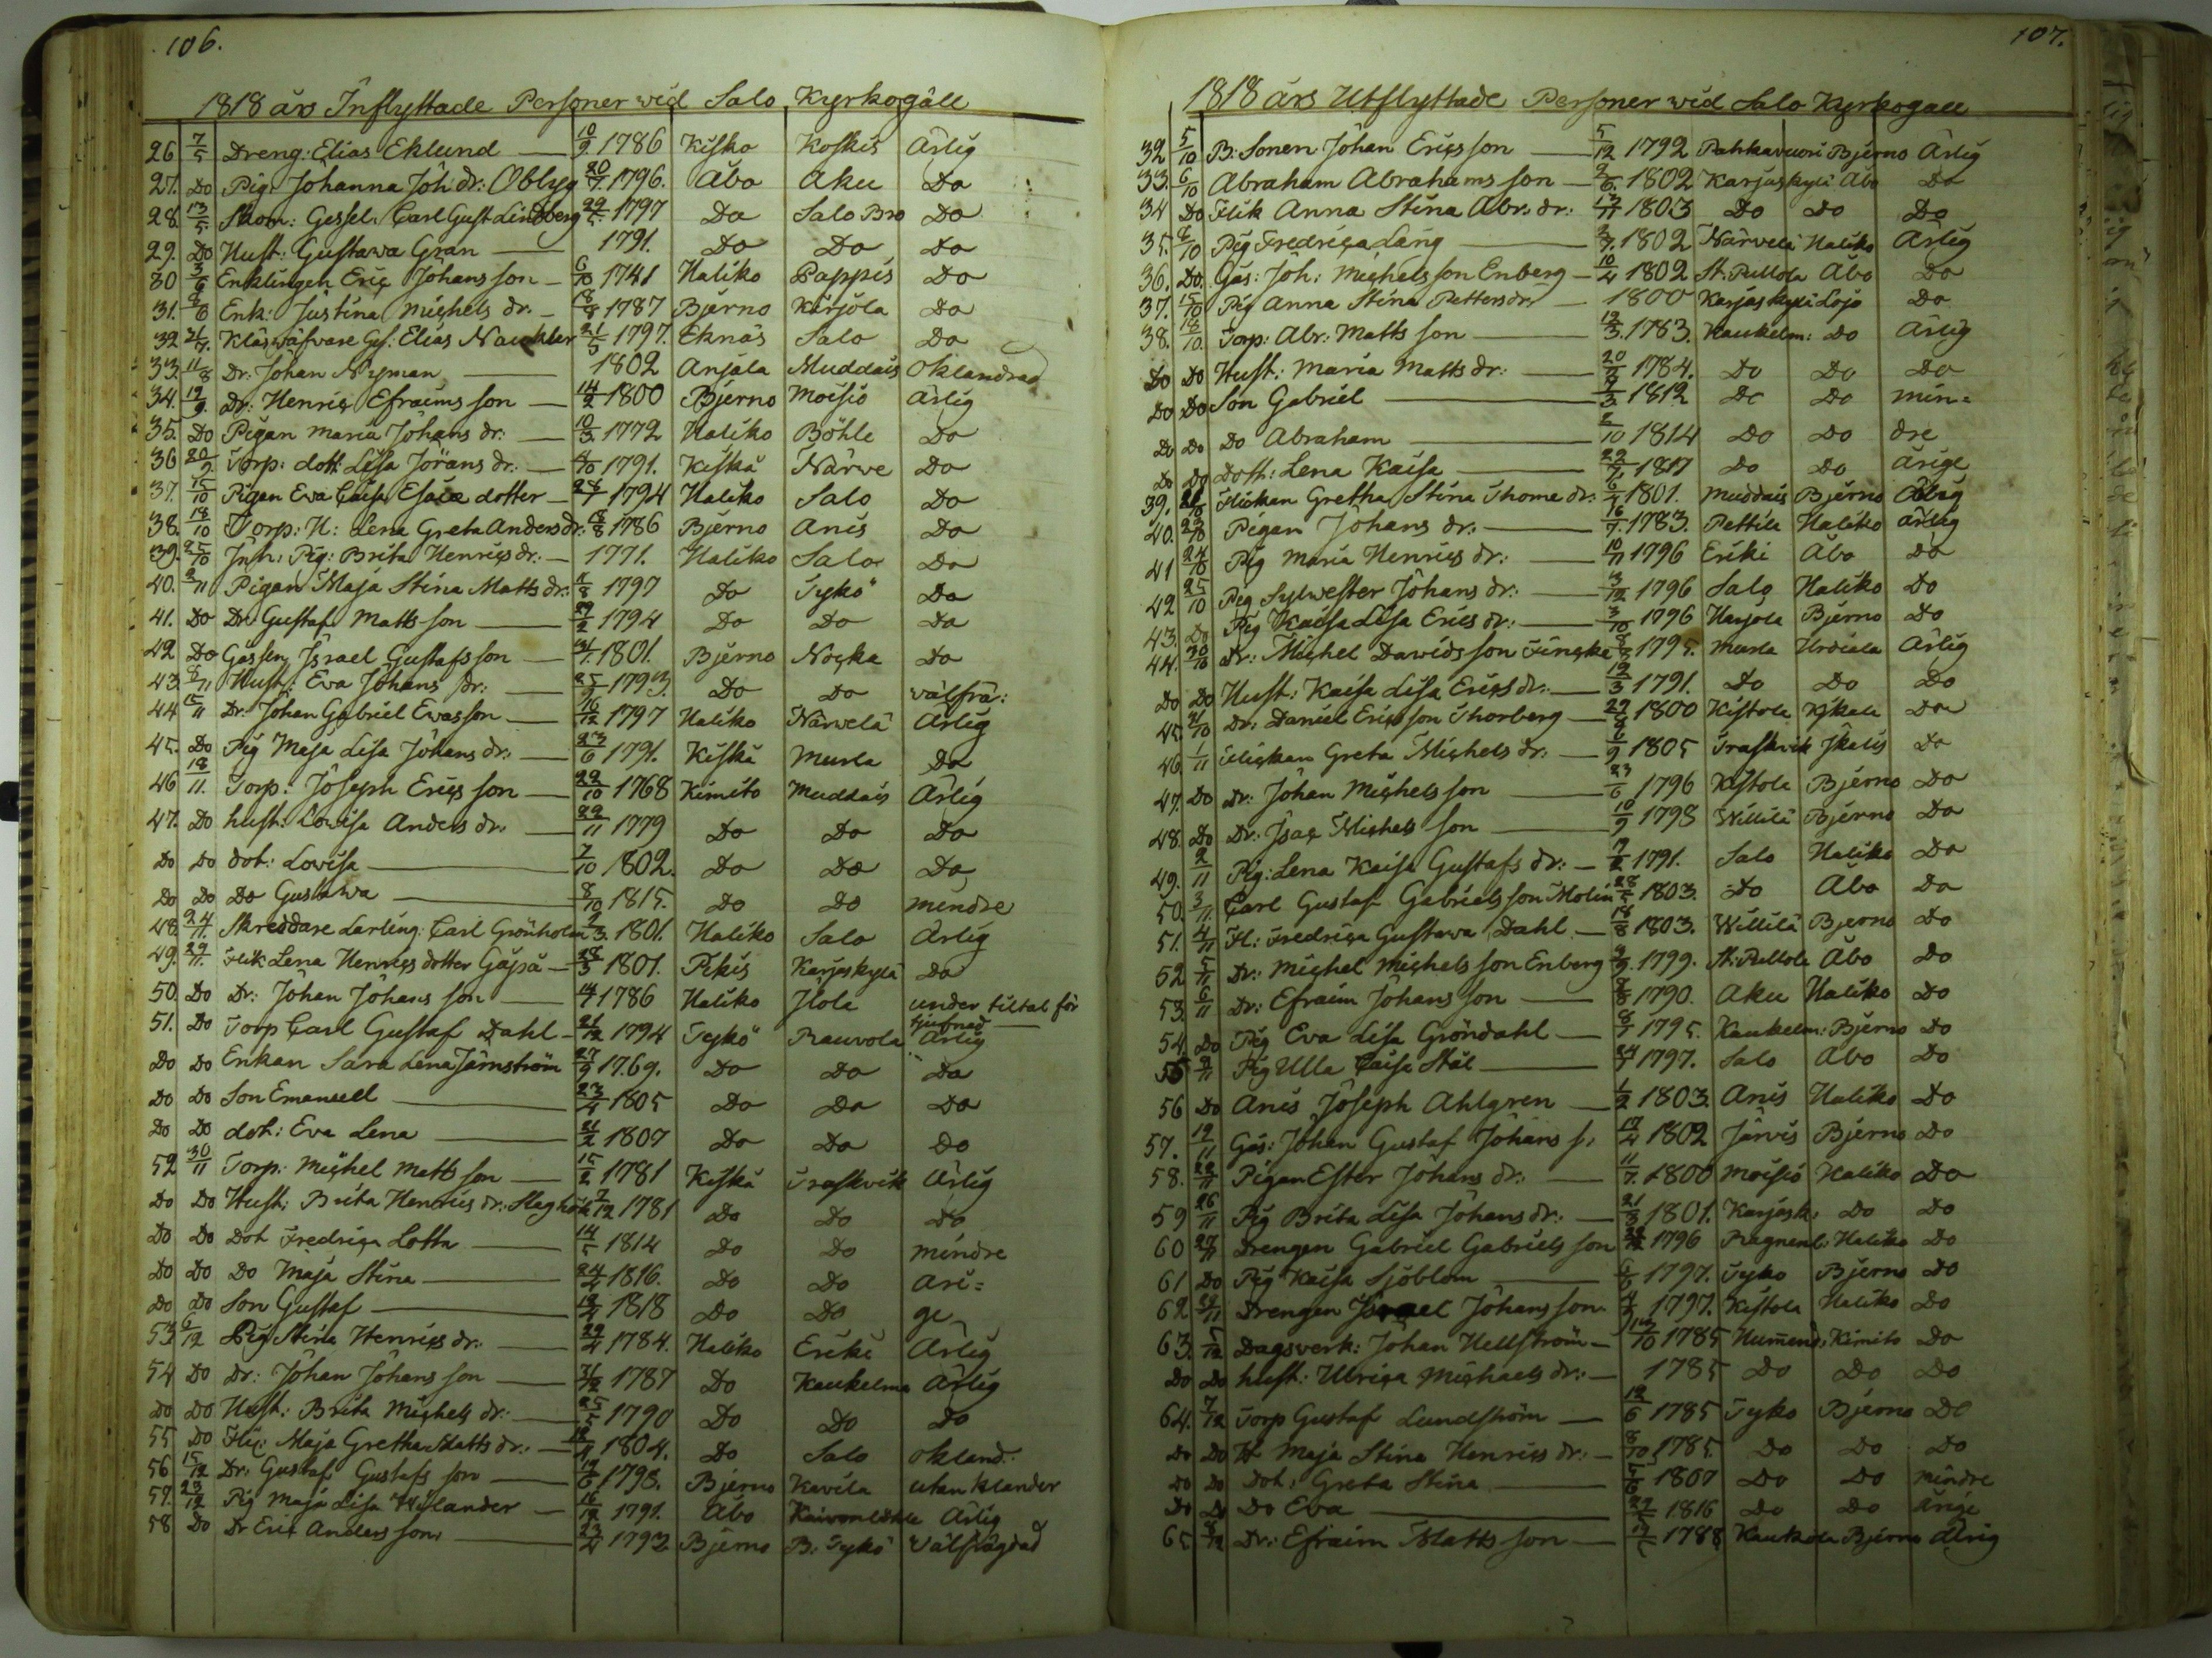 106.
1818 års Inflyttade Personer wid Salo Kyrkogäll
26 7/5 Dreng: Elias Eklund 10/9 1786 Kisko Koskis Ärlig
27. Do Pig: Johanna Joh: dr: Oblyg 20/7 1796. Åbo Aku Do
28. 13/5 Skom: Gessel. Carl Gust Lindberg 29/5 1797 Do Salo Bro Do
29. Do Hust: Gustawa Gran 1791. Do Do Do
30 3/6 Enklingen Eric Johans son 6/10 1741 Haliko Pappis Do
31. 8/6 Enk: Justina Michels dr: 18/8 1787 Bjerno Karjola Do
32 21/7. Kläswäfvare Ges: Elias Naukler 21/5 1797. Eknäs Salo Do
33. 11/8 Dr: Johan Nyman 1802 Anjala Muddais Oklandrad
34. 19/9. Dr: Henric Efraims son 14/2 1800 Bjerno Moisio Ärlig
35. Do Pigan Maria Johans dr: 10/3. 1772 Haliko Böhle Do
36 20/9 Torp: dott: Lisa Jörans dr: 1791. Kiskå Närwe Do
37. 15/10 Pigan Eva Caisa Esaiæ dotter 28/1 1794 Haliko Salo Do
38. 18/10 Torp: H: Lena Greta Anders dr: 18/8 1786 Bjerno Anis Do
39. 25/10 Inh: Pig: Brita Henrics dr: 1771. Haliko Salo Do
40. 2/11 Pigan Maja Stina Matts dr: 8/8 1797 Do Tykö Do
41. Do Dr: Gustaf Matts son 29/2 1794 Do Do Do
42 Do Gossen Israel Gustafs son 1801. Bjerno Nocka Do
43. 8/11 Hust: Eva Johans dr: 25/9 1793. Do Do wälfrä:
44 15/11 Dr: Johan Gabriel Ewasson 16/12 1797 Haliko Närwelä Ärlig
45. Do Pig Maja Lisa Johans dr: 23/6 1791. Kiskå Murla Do
46 18/11. Torp: Joseph Erics son 22/10 1768 Kimito Muddais Ärlig
47. Do hust: Lovisa Anders dr: 29/11 1779 Do Do Do
Do Do dot: Lovisa 7/10 1802. Do Do Do
Do Do Do Gustawa 8/10 1815. Do Do mindre
48. 24/11. Skreddare Larling: Carl Grönholm 9/3. 1801. Haliko Salo Ärlig
49. 29/11. Flik Lena Henrics dotter Gåpå 28/3 1801. Pikis Karjaskylä Do
50. Do Dr: Johan Johans son 14/7 1786 Haliko Ilola under tiltal för
tjufnad
51. Do Torp Carl Gustaf Dahl 21/12 1794 Tykö Rauvola Ärlig
Do Do Enkan Sara Lena Järnström 27/9 1769. Do Do Do
Do Do Son Emanuell 23/4 1805 Do Do Do
Do Do dot: Eva Lena 21/2 1807 Do Do Do
52 30/11 Torp: Michel Matts son 15/2 1781 Kiskå Traskvik Ärlig
Do Do Hust: Brita Henrics dr: Slaghök 7/12 1781 Do Do Do
Do Do Dot Fredrica Lotta 14/5 1814 Do Do mindre
Do Do Do Maja Stina 24/4 1816. Do Do äri=
Do Do Son Gustaf 19/4 1818 Do Do ge
53. 6/12 Pig Stina Henrics dr: 29/4 1784. Haliko Eriki Ärlig
54 Do Dr: Johan Johans son 1787 Do Kaukelma Ärlig
Do Do Hust: Brita Michels dr: 25/5 1790 Do Do Do
55 Do Flic: Maja Gretha Matts dr: 1804. Do Salo okland.
56 15/12 Dr: Gustaf Gustafs son 19/6 1793. Bjerno Kavila utan klander
57. 23/12 Pig Maja Lisa Wilander 16/12 1791. Åbo Ärlig
58 Do Dr Eric Anders son 23/4 1793 Bjerno B: Tykö Välfrägdad
107.
1818 års Utflyttade Personer wid Salo Kyrkogäll
32 5/10 B: Sonen Johan Erics son 5/12 1792 Pahkavuori Bjerno Ärlig
33. 6/10 Abraham Abrahams son 2/6. 1802 Karjaskylä Åbo Do
34 Do Flik Anna Stina Abr: dr: 1803 Do Do Do
35. 8/10 Pig Fredrica Lang 1802 Närvelä Haliko Ärlig
36. Do. Gås: Joh: Michels son Enberg 10/4 1802 St: Pullola Åbo Do
37. 15/10 Pig Anna Stina Petters dr 1800 Karjaskylä Lojo Do
38. 18/10. Torp: Abr: Matts son 12/3. 1783. Kaukelm: Do Ärlig
Do Do Hust: Maria Matts dr: 1784. Do Do Do
Do Do Son Gabriel 1812 Do Do min=
Do Do Do Abraham 2/10 1814 Do Do dre
Do Do Dott: Lena Kaisa 1817 Do Do ärige
39. Flickan Gretha Stina Thome dr: 1801. Muddais Bjerno Ärlig
40. 23/10 Pigan Johans dr: 16/7. 1783. Pettila Haliko ärlig
41 24/10 Pig Maria Henrics dr: 10/11 1796 Eriki Åbo Do
42 25/10 Pig Sylwester Johans dr: 1796 Salo Haliko Do
43. Do Pig Kaisa Lisa Erics dr: 3/10 1796 Karjola Bjerno Do
44. 30/10 Dr: Michel Dawids son Fincke 1795. Murla Urdiala Ärlig
Do Do Hust: Kaisa Lisa Erics dr: 12/3 1791. Do Do Do
45. 31/10 Dr: Daniel Erics son Thorberg 1800 Kistola Do
46. 1/11 Flickan Greta Michels dr: 6/9 1805 Traskvik Ikalis Do
47. Do Dr: Johan Michels son 23/6 1796 Kistola Bjerno Do
48. Do Dr: Isac Michels son 10/9 1798 Willilä Bjerno Do
49. 2/11 Pig: Lena Kaisa Gustafs dr: 1791. Salo Haliko Do
50. 3/11. Carl Gustaf Gabriels son Molin 1803. Do Åbo Do
51. 4/11 Fl: Fredrica Gustawa Dahl 18/8 1803. Willilä Bjerno Do
52 5/11 Dr: Michel Michels son Enberg 1799. St: Pullola Åbo Do
53 6/11 Dr: Efraim Johans son 1790. Aku Haliko Do
54. Do Pig Eva Lisa Gröndahl 8/1 1795. Kaukelm: Bjerno Do
55 9/11 Pig Ulla Caisa Stål 1797. Salo Åbo Do
56 Do Anis Joseph Ahlgren 1/2 1803. Anis Haliko Do
57. 19/11 Gås: Johan Gustaf Johans s: 17/4 1802 Järvis Bjerno Do
58. 22/11 Pigan Ester Johans dr: 11/7. 1800 Moisio Haliko Do
59 26/11 Pig Brita Lisa Johans dr: 21/8 1801. Karjask: Do Do
60 27/11 Drengen Gabriel Gabriels son 1796 Ragnenl: Haliko Do
61 Do Pig Kaisa Sjöblom 1797. Tyko Bjerno Do
62 Drengen Israel Johans son 1797. Kistola Haliko Do
63. 5/12 Dagsverk: Johan Hellström 1785 Hummend: Kimito Do
Do Do hust: Ulrica Michaels dr: 1785 Do Do Do
64. 7/12 Torp Gustaf Lundström 12/6 1785 Tyko Bjerno Do
Do Do H Maja Stina Henrics dr: 8/10 1785. Do Do Do
Do Do Dot: Greta Stina 1807 Do Do mindre
Do Do Do Eva 1816 Do Do ärige
65 8/12 Dr: Efraim Matts son 1788 Kaukola Bjerno ärlig